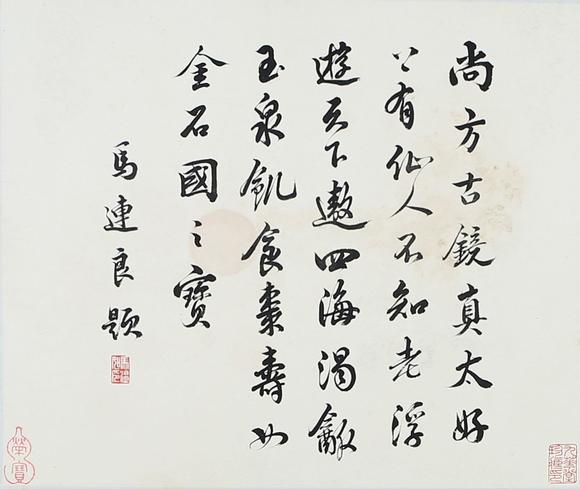 尚方古鏡真太好
上有仙人不知老浮
遊天下遨四海渴飲
玉泉飢食棗壽如
金石國之寶
馬連良題
榮寶